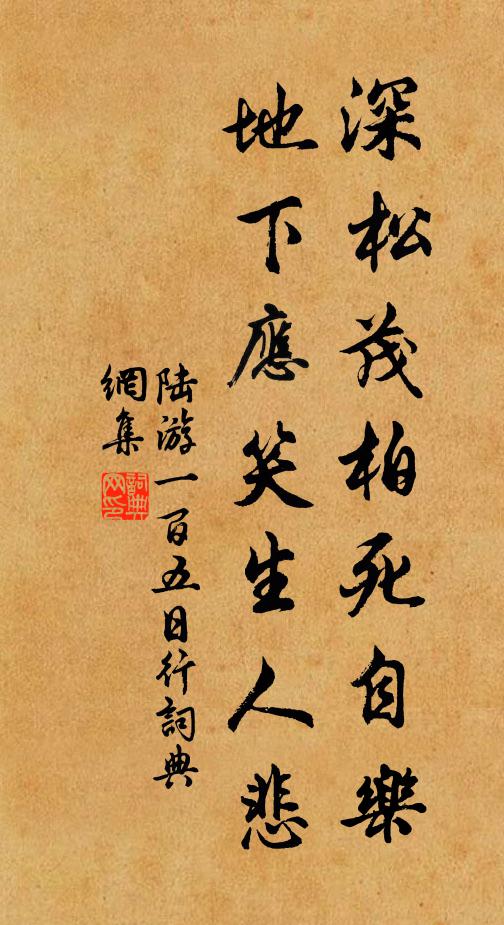 深松茂柏死自樂
地下應笑生人悲
陸游一百五日行詞典
網集
詞典
网印